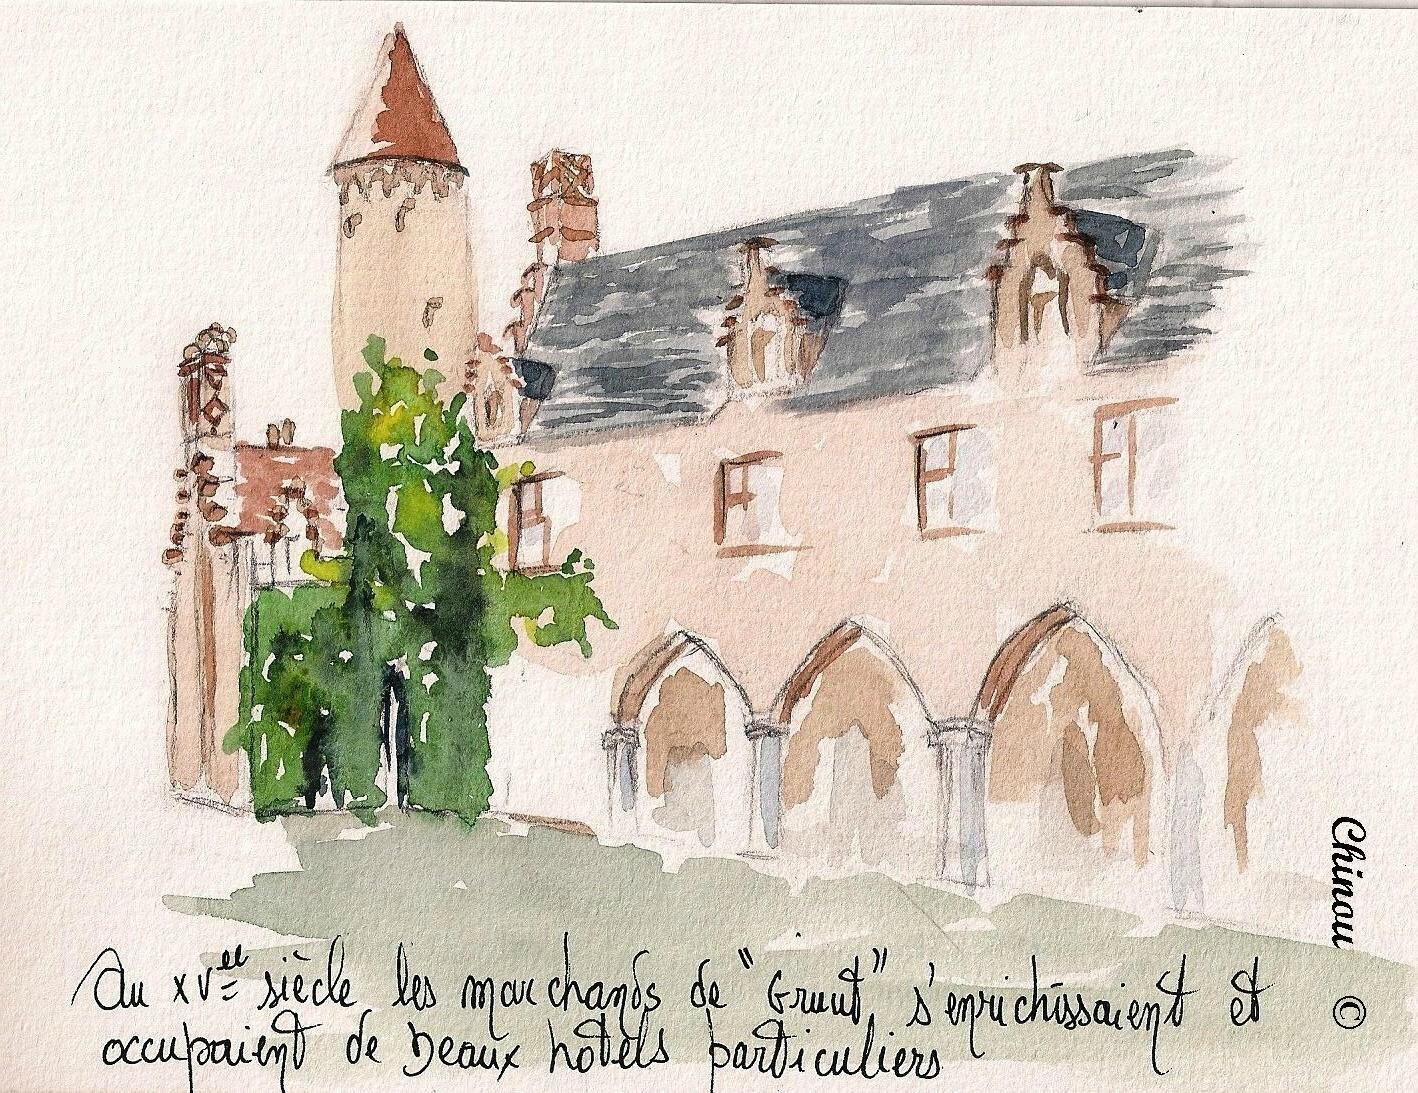 Au XVee siècle les marchands de "Gruut" s'enrichissaient et
occupaient de beaux hôtels particuliers
Chinou ©